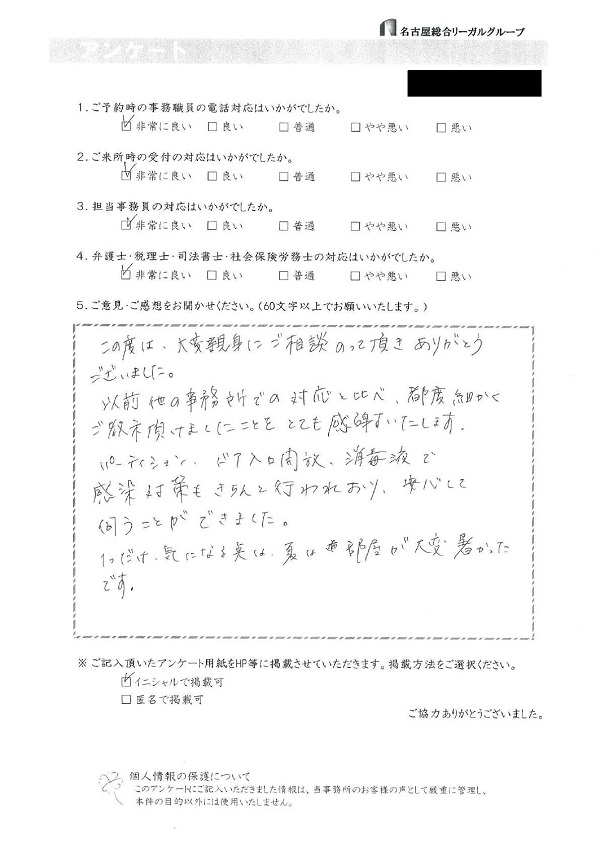 名古屋総合リーガルグループ
アンケート
1.ご予約時の事務職員の電話対応はいかがでしたか。
☑非常に良い □良い □普通 □やや悪い □悪い
2.ご来所時の受付の対応はいかがでしたか。
☑非常に良い □良い □普通 □やや悪い □悪い
3.担当事務員の対応はいかがでしたか。
☑非常に良い □良い □普通 □やや悪い □悪い
4.弁護士・税理士・司法書士・社会保険労務士の対応はいかがでしたか。
☑非常に良い □良い □普通 □やや悪い □悪い
5.ご意見・ご感想をお聞かせください。(60文字以上でお願いいたします。)
この度は、大変親身にご相談のって頂きありがとう
ございました。
以前他の事務所での対応と比べ、都度細かく
ご教示頂けましたことをとても感謝いたします。
パーティション、ドア入口開放、消毒液で
感染対策もきちんと行われおり、安心して
伺うことができました。
1つだけ、気になる点は、夏は部屋が大変暑かった
です。
※ご記入頂いたアンケート用紙をHP等に掲載させていただきます。掲載方法をご選択ください。
☑イニシャルで掲載可
□匿名で掲載可
ご協力ありがとうございました。
個人情報の保護について
このアンケートにご記入いただきました情報は、当事務所のお客様の声として厳重に管理し、
本件の目的以外には使用いたしません。